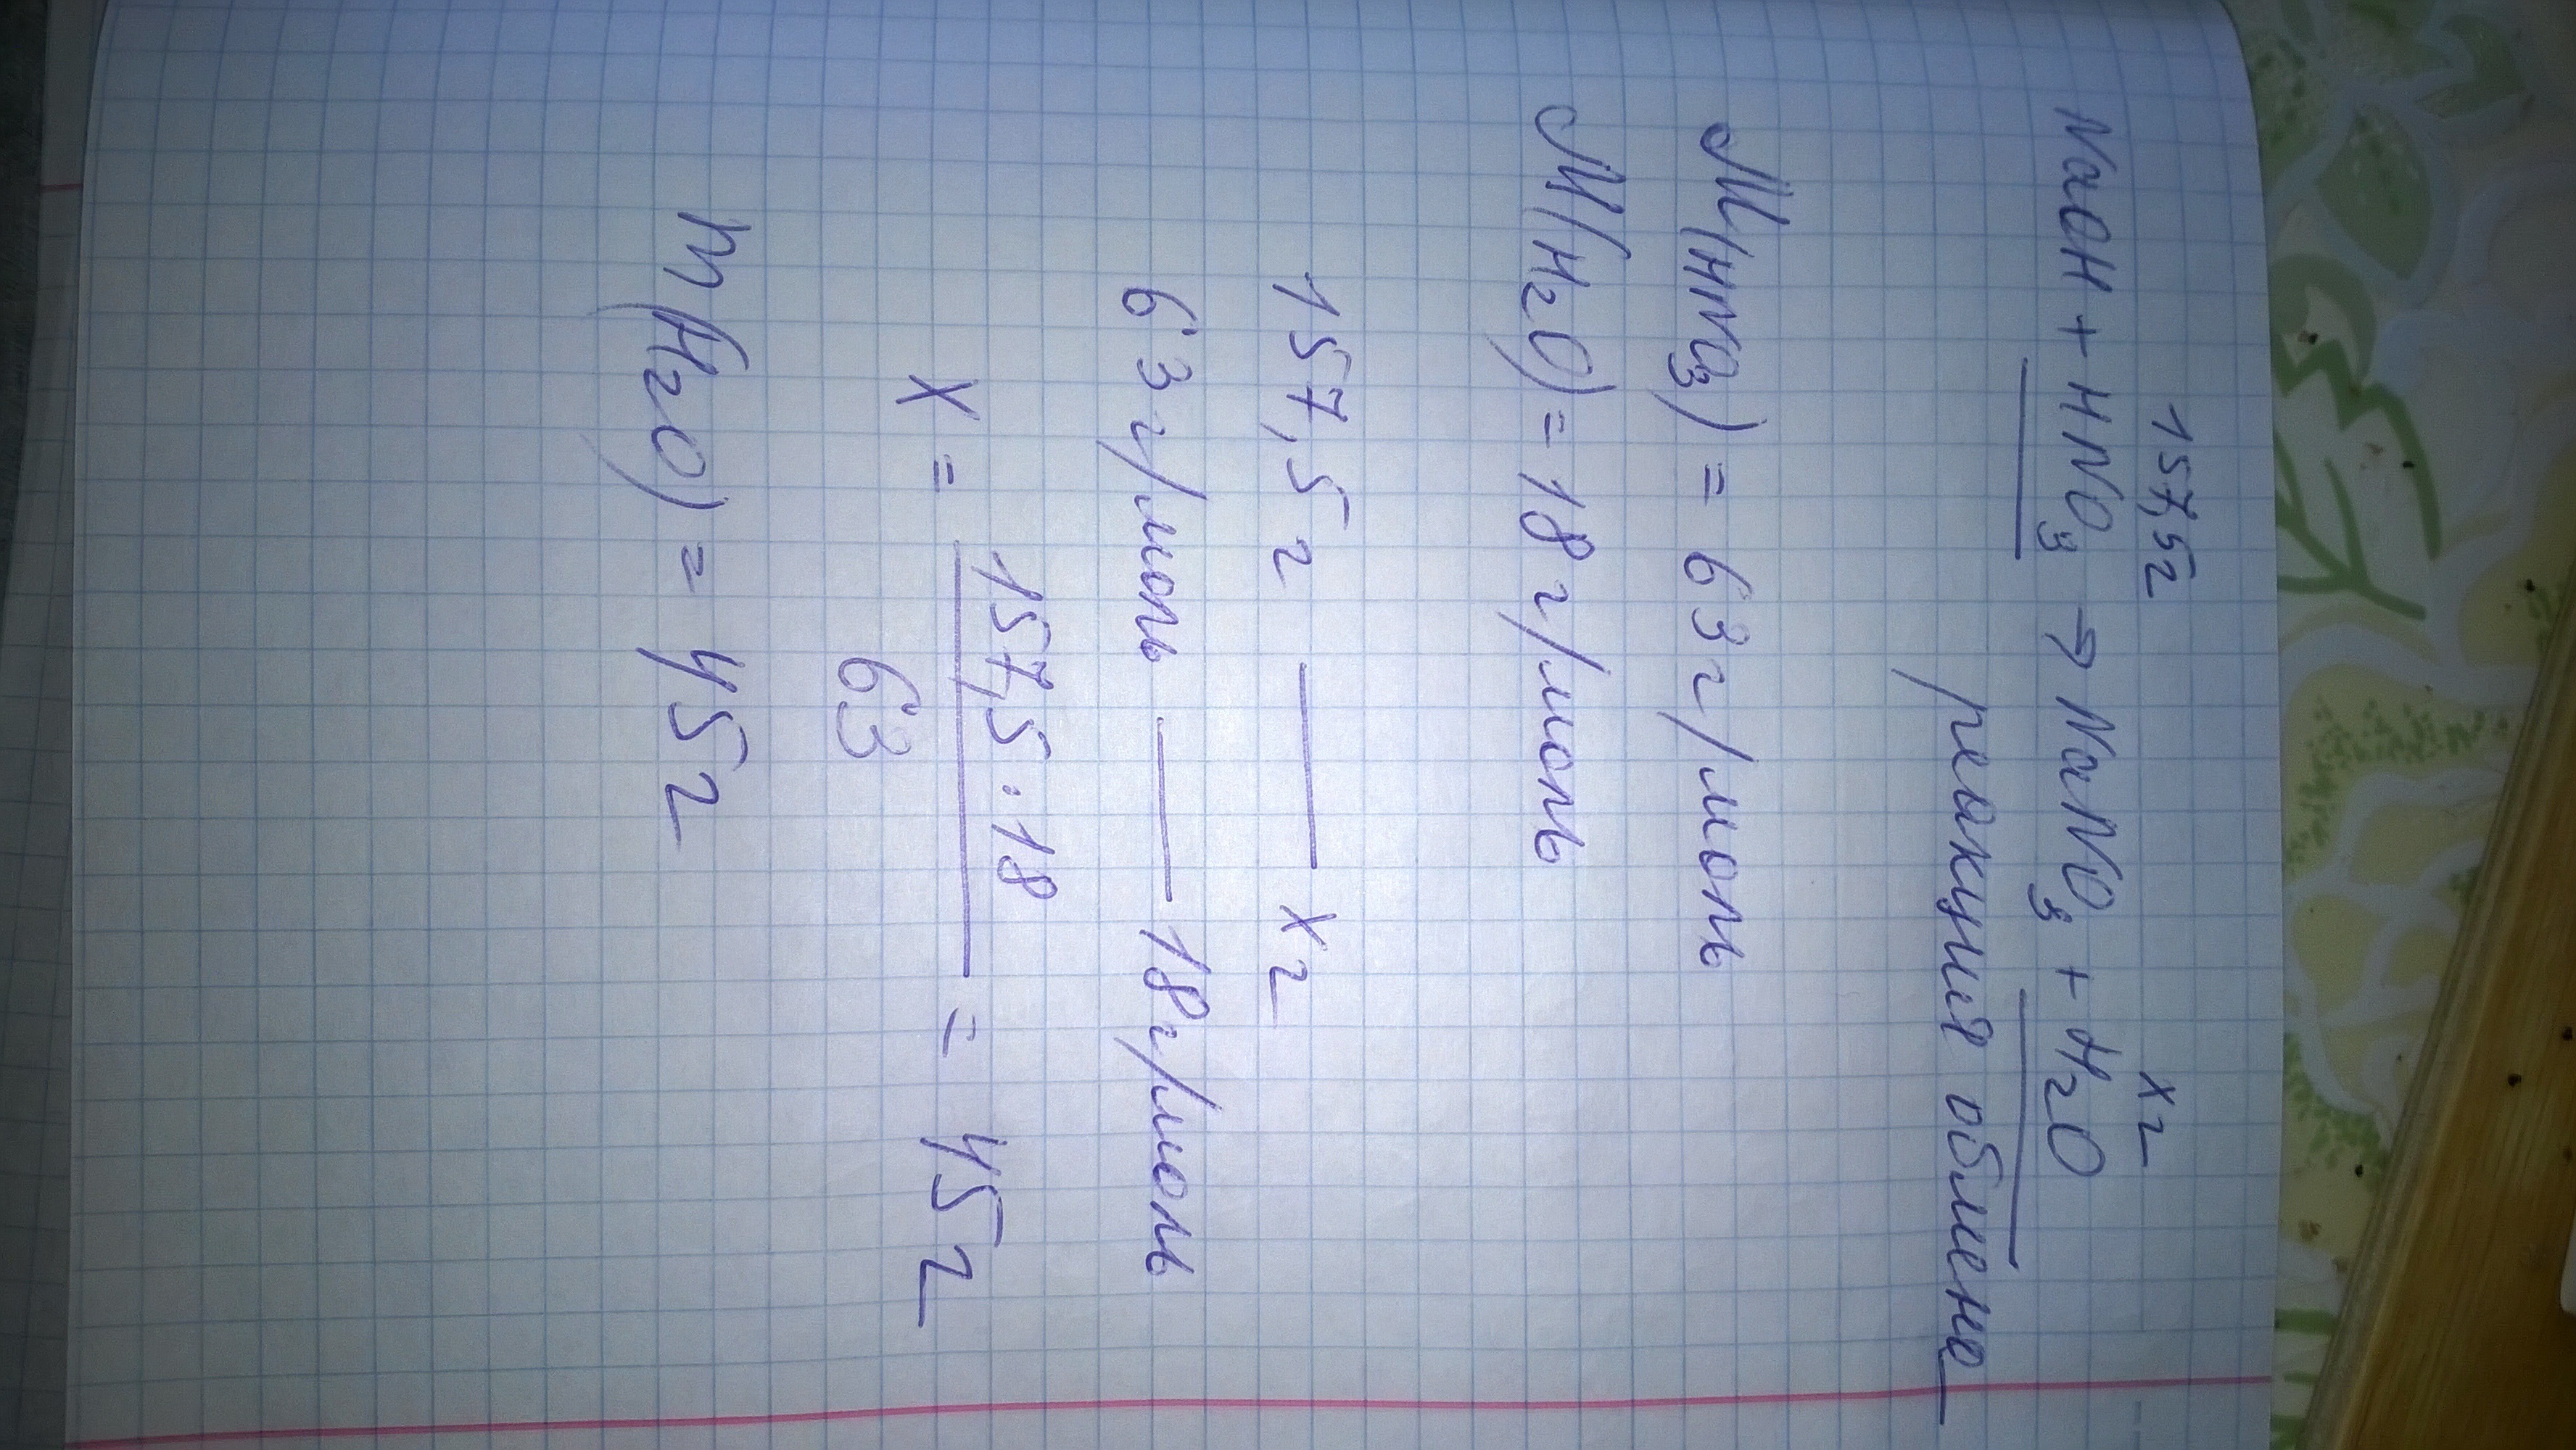 157,5г xг
NaOH + HNO₃ → NaNO₃ + H₂O
реакция обмена
M(HNO₃) = 63 г/моль
M(H₂O) = 18 г/моль
157,5 г — x г
63 г/моль — 18 г/моль
x = 157,5 · 18 / 63 = 45 г
m(H₂O) = 45 г